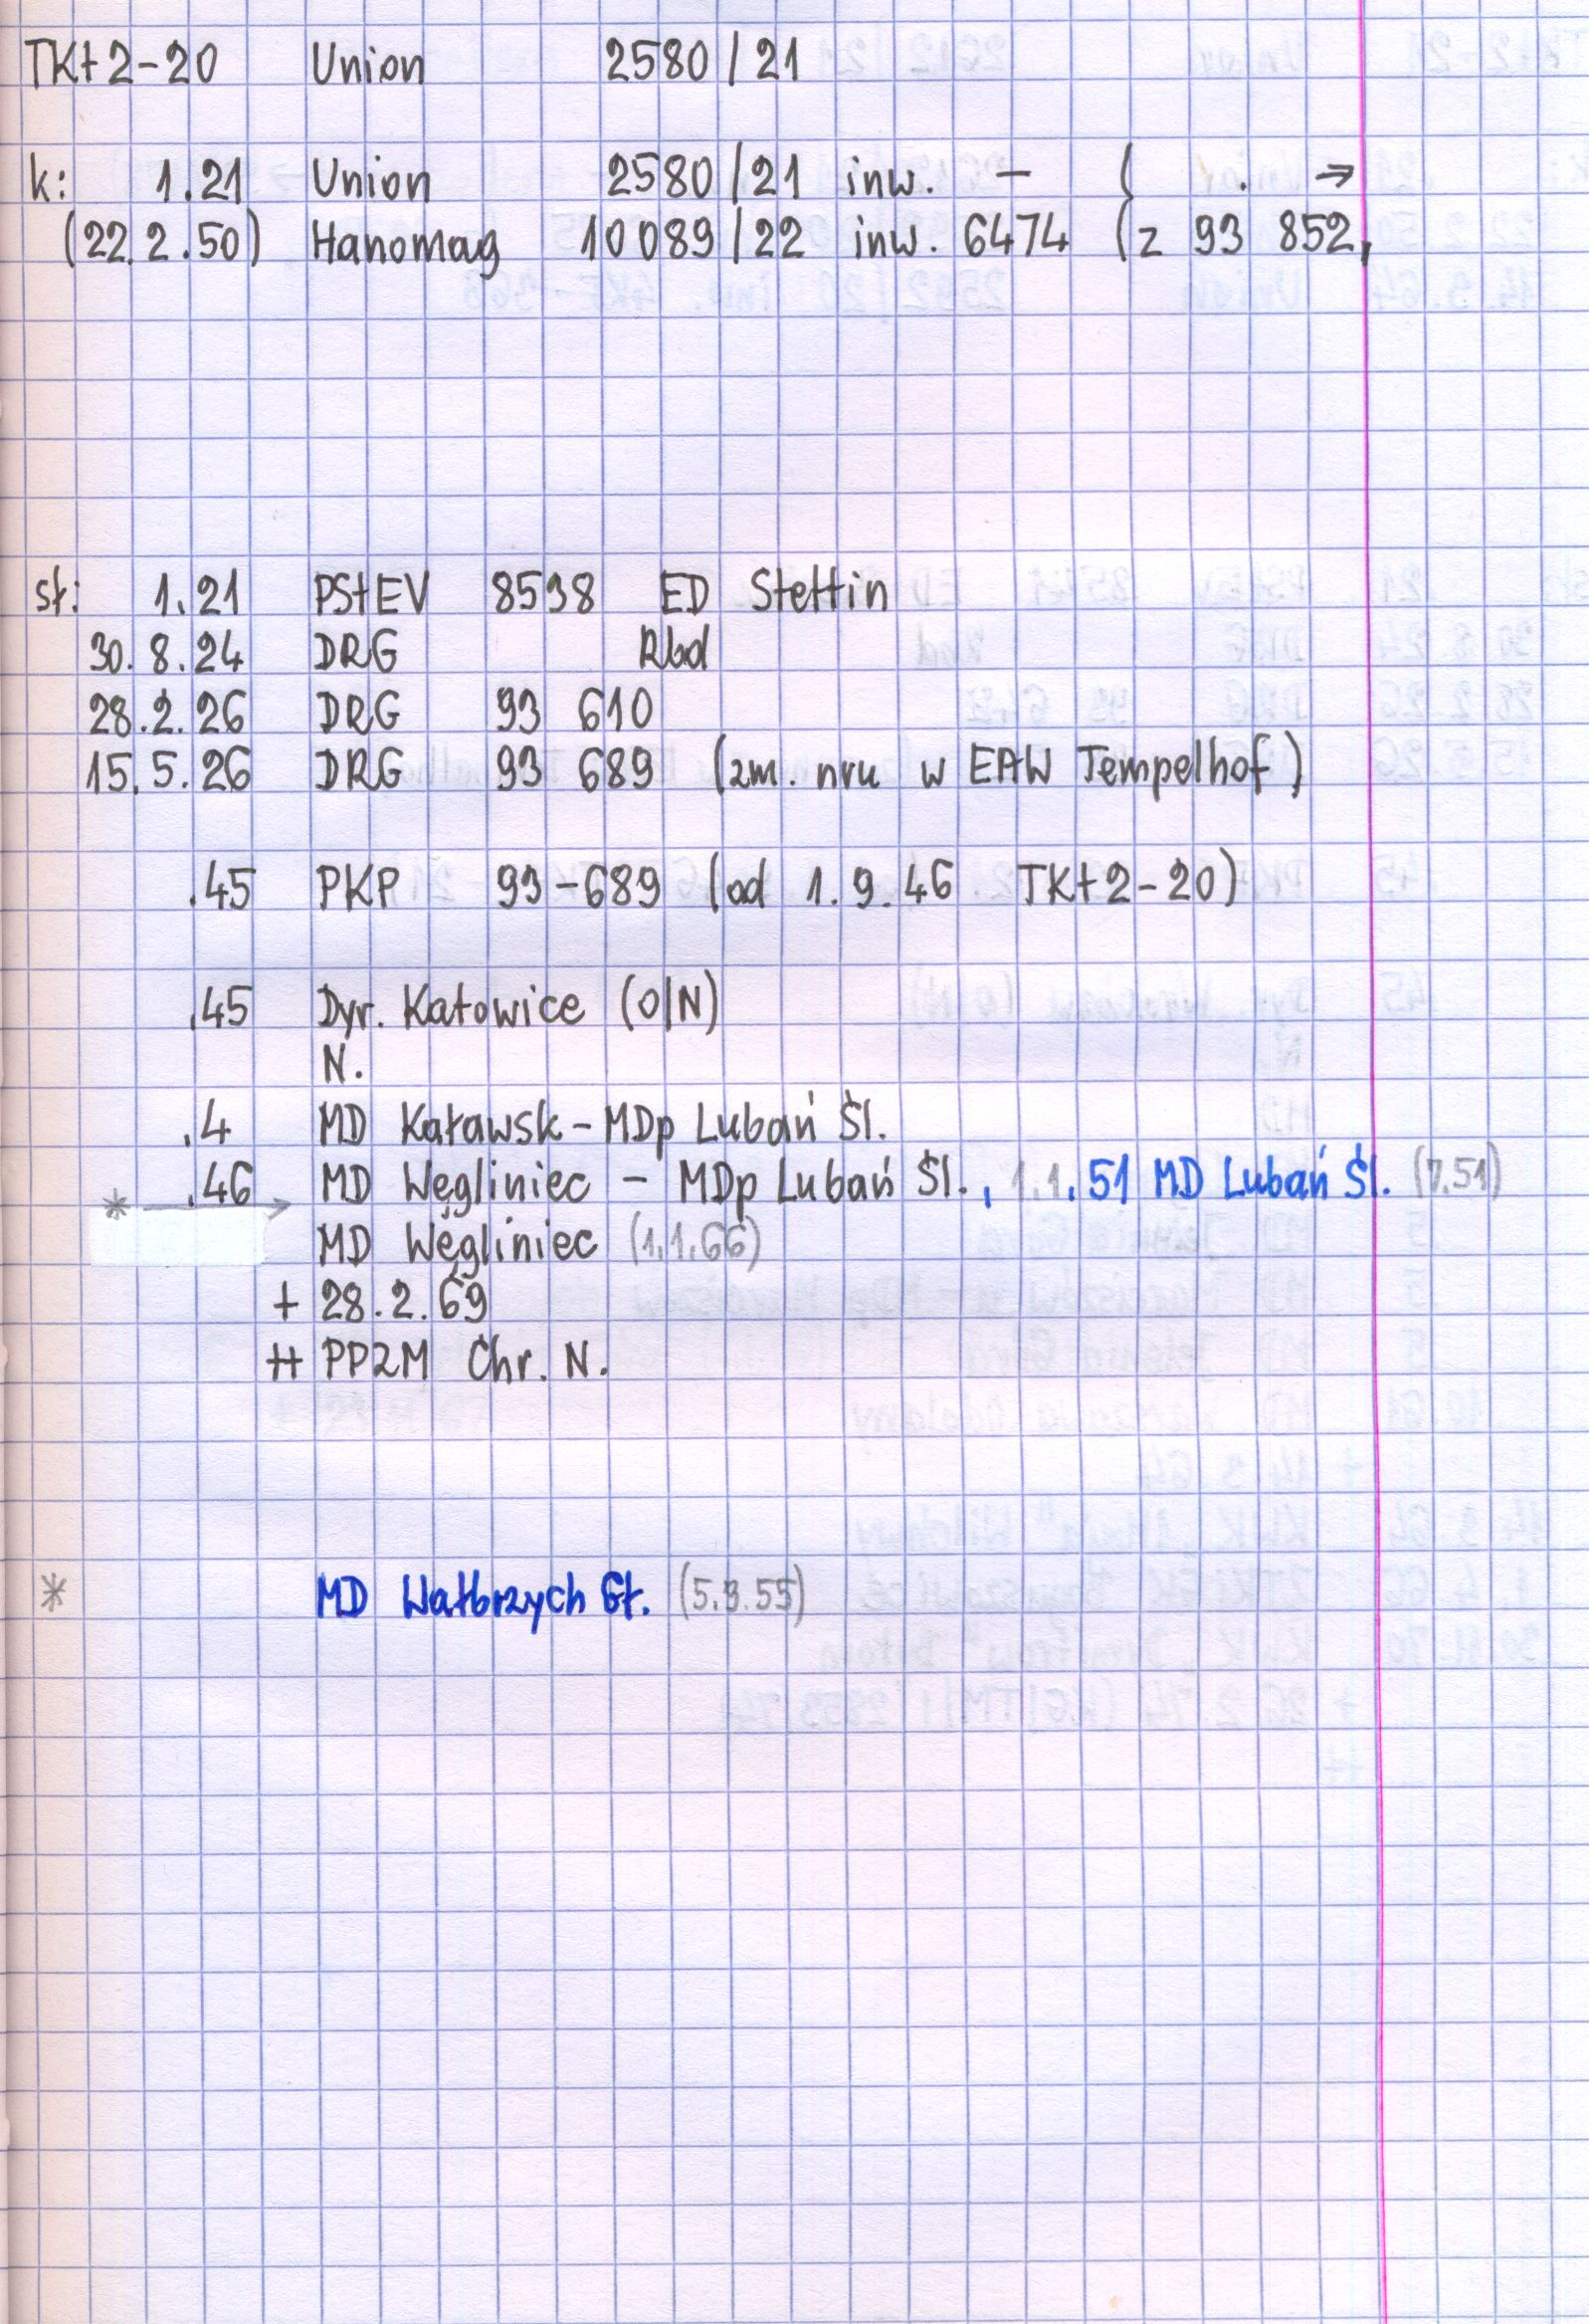 TKt2-20 Union 2580/21
k: 1.21 Union 2580/21 inw. - ( . →
(22.2.50) Hanomag 10089/22 inw. 6474 (z 93 852,
st: 1.21 PStEV 8598 ED Stettin
30.8.24 DRG Rbd
28.2.26 DRG 93 610
15.5.26 DRG 93 689 (zm. nru w EAW Tempelhof)
.45 PKP 93-689 (od 1.9.46 TKt2-20)
.45 Dyr. Katowice (O/N)
N.
.4 MD Kaławsk - MDp Lubań Śl.
* .46 → MD Węgliniec - MDp Lubań Śl., 1.1.51 MD Lubań Śl. (7.51)
MD Węgliniec (1.1.66)
+ 28.2.69
++ PPZM Chr. N.
* MD Wałbrzych Gł. (5.9.55)